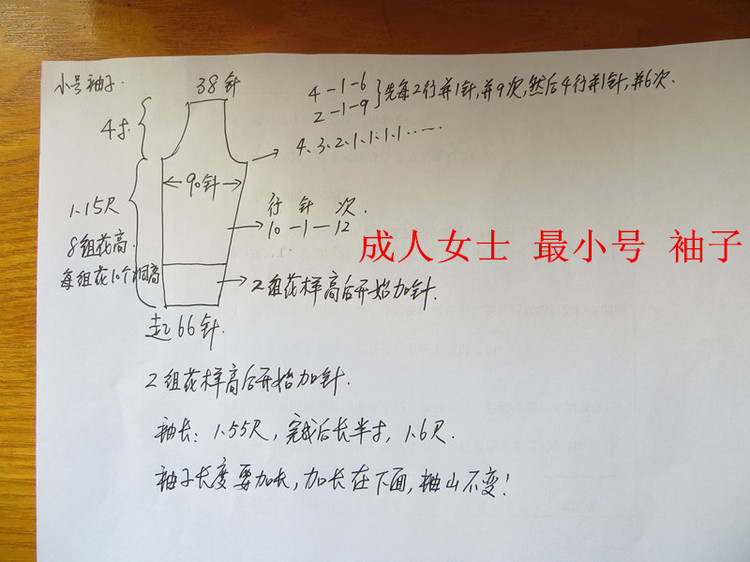 小号袖子.
38针
4-1-6
2-1-9
先每2行并1针,并9次,然后4行并1针,并6次.
4寸.
4、3、2、1、1、1、1......
90针
1.15尺
行 针 次.
10-1-12
成人女士 最小号 袖子
8组花高.
每组花10个洞高
2组花样高后开始加针.
起66针.
2组花样高后开始加针.
袖长: 1.55尺, 完成后长半寸, 1.6尺.
袖子长度要加长, 加长在下面, 袖山不变!